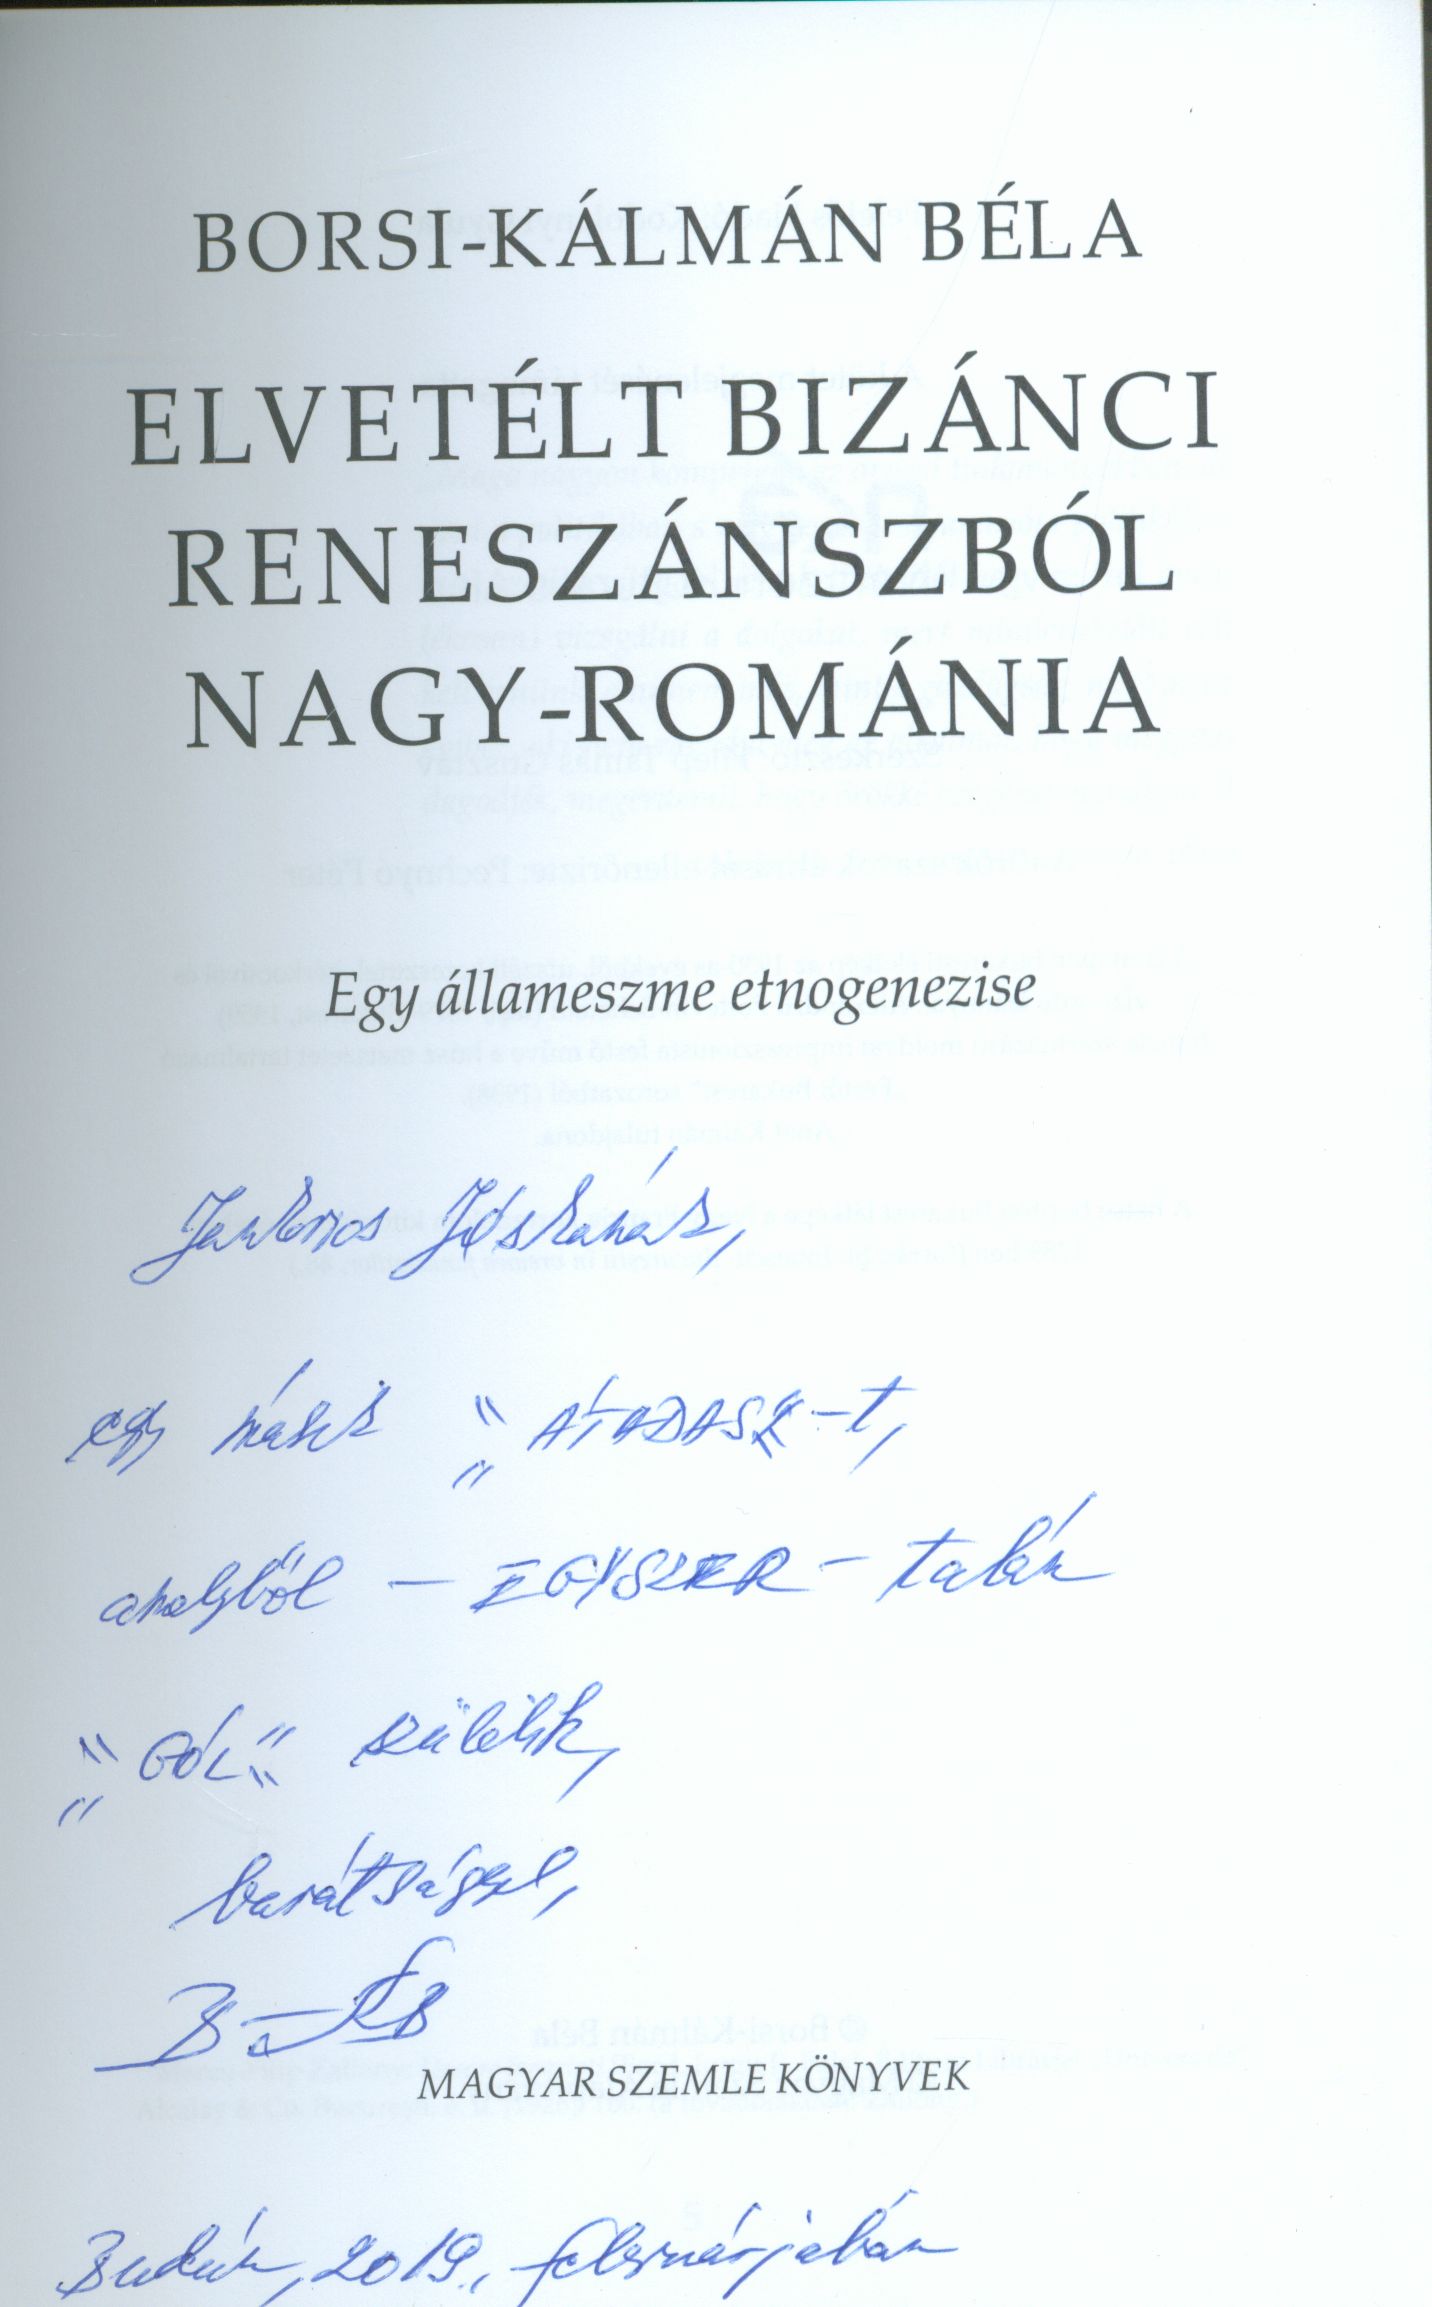 BORSI-KÁLMÁN BÉLA
ELVETÉLT BIZÁNCI
RENESZÁNSZBÓL
NAGY-ROMÁNIA
Egy állameszme etnogenezise
Jankovics Jóskának,
egy másik „ÁTADÁS"-t,
amelyből — EGYSZER — talán
„GÓL" születik,
barátsággal,
B-KB
MAGYAR SZEMLE KÖNYVEK
Budán, 2019., februárjában